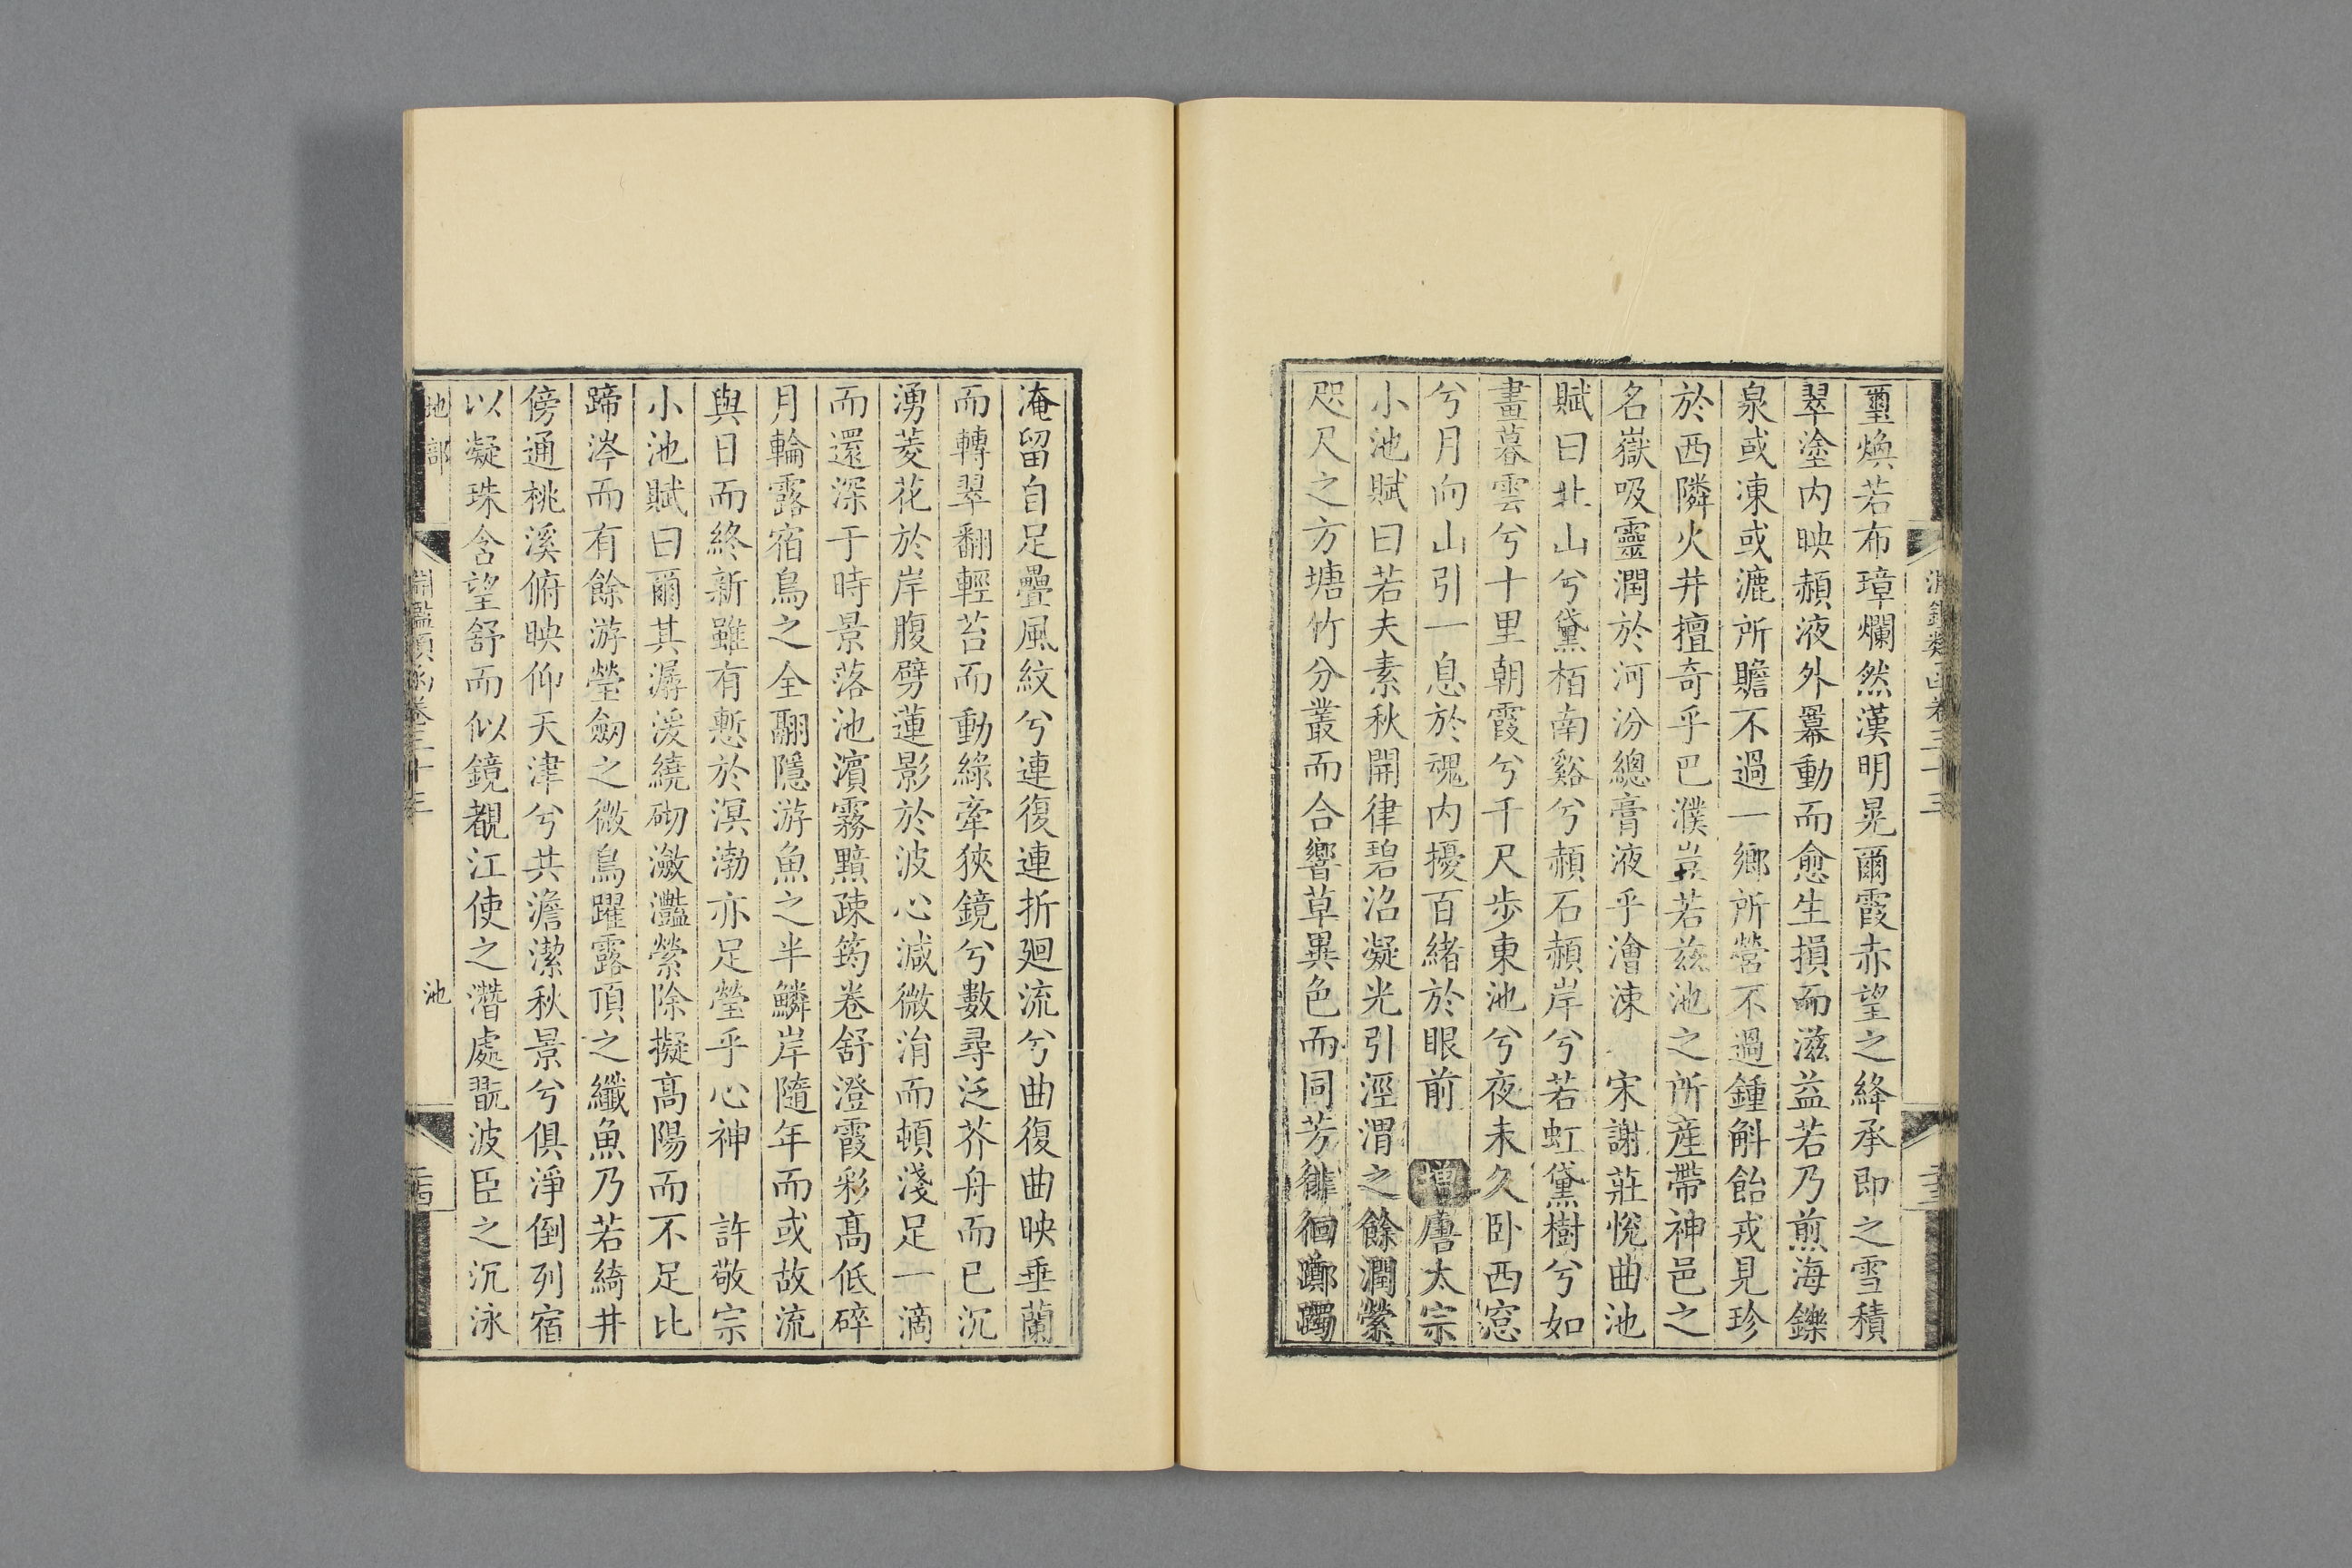 淵鑑類函卷三十三
璽煥若布璋爛然漢明晃爾霞赤望之絳承即之雪積
翠塗内映赬液外羃動而愈生損而滋益若乃煎海鑠
泉或凍或漉所贍不過一鄉所營不過鍾斛飴戎見珍
於西隣火井擅奇乎巴濮豈若兹池之所産帶神邑之
名嶽吸靈潤於河汾總膏液乎澮涑　宋謝莊悅曲池
賦曰北山兮黛栢南谿兮赬石赬岸兮若虹黛樹兮如
畫暮雲兮十里朝霞兮千尺步東池兮夜未久卧西窓
兮月向山引一息於魂内擾百緒於眼前　增唐太宗
小池賦曰若夫素秋開律碧沼凝光引涇渭之餘潤縈
咫尺之方塘竹分叢而合響草異色而同芳徘徊躑躅
淹留自足疊風紋兮連復連折廻流兮曲復曲映垂蘭
而轉翠翻輕苔而動綠牽狹鏡兮數尋泛芥舟而已沉
湧菱花於岸腹劈蓮影於波心減微涓而頓淺足一滴
而還深于時景落池濱霧黯疎筠卷舒澄霞彩高低碎
月輪露宿鳥之全翮隱游魚之半鱗岸隨年而或故流
與日而終新雖有慙於溟渤亦足瑩乎心神　許敬宗
小池賦曰爾其潺湲繞砌瀲灩縈除擬高陽而不足比
蹄涔而有餘游瑩劒之微鳥躍露頂之纎魚乃若綺井
傍通桃溪俯映仰天津兮共澹潔秋景兮俱淨倒列宿
以凝珠含望舒而似鏡覩江使之潛處翫波臣之沉泳
地部　淵鑑類函卷三十三　池